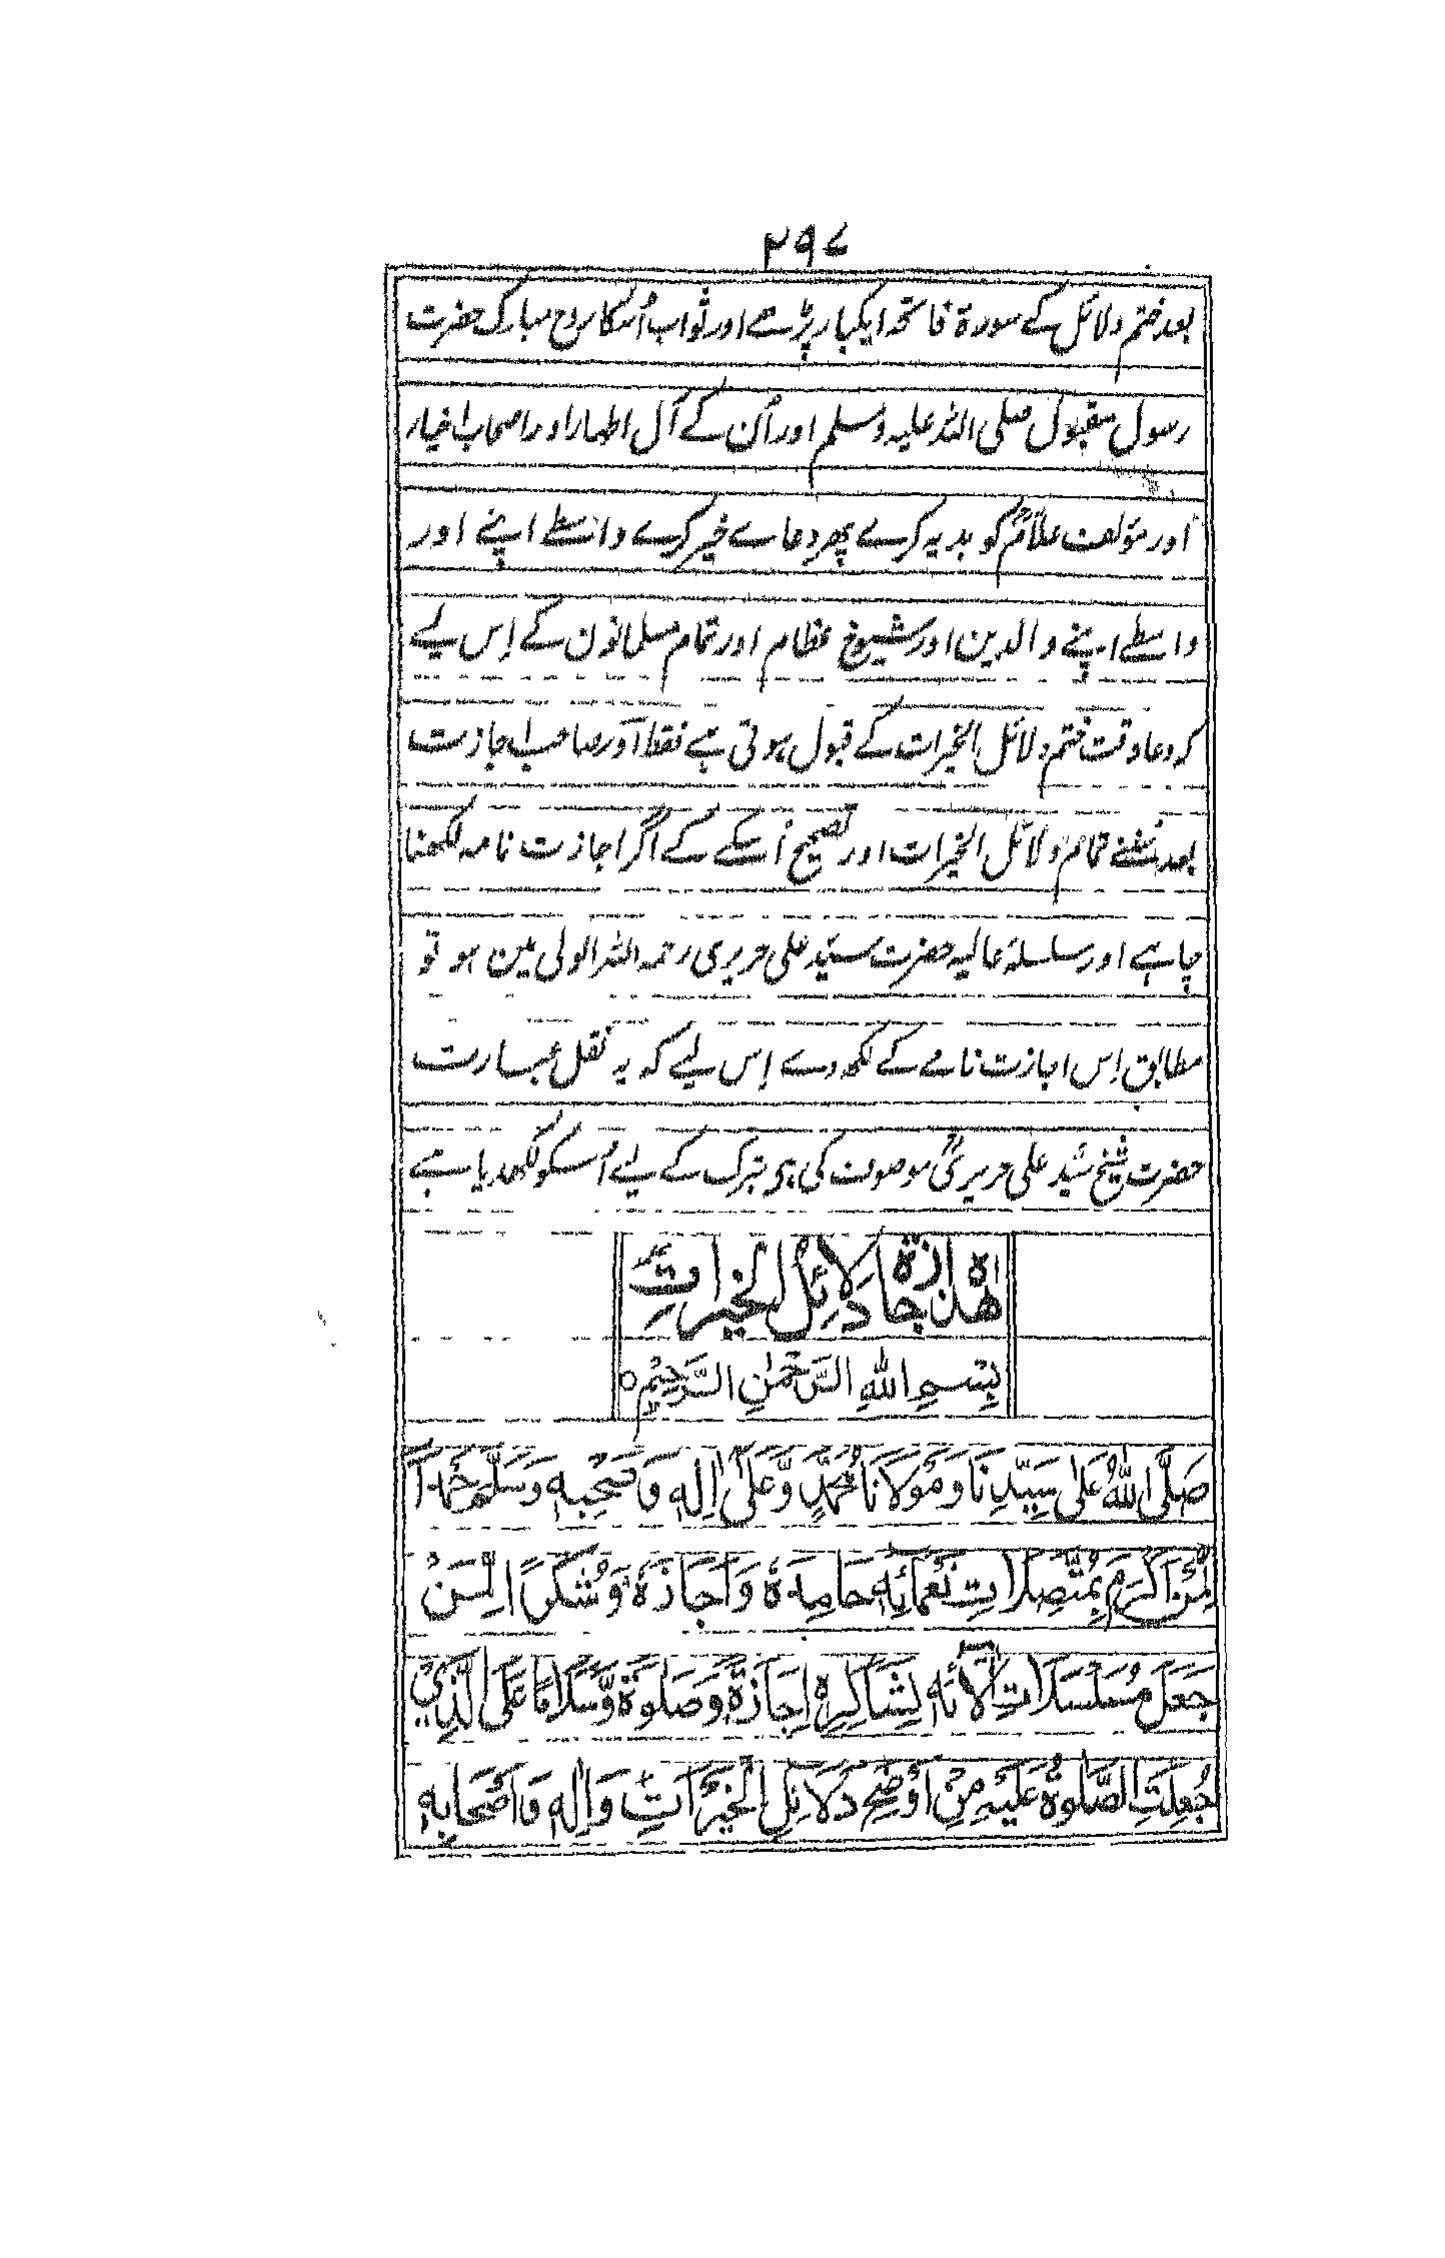 ۲۹۷
بعد ختم دلائل کے سورۃ فاتحہ ایکبار پڑھے اور ثواب اُسکا روح مبارک حضرت
رسول مقبول صلی اللہ علیہ وسلم اور اُن کے آل اطہار اور اصحاب اخیار
اور مؤلف علامؒ کو ہدیہ کرے پھر دعاے خیر کرے واسطے اپنے اور
واسطے اپنے والدین اور شیوخ عظام اور تمام مسلمانون کے اِس لیے
کہ دعا وقت ختم دلائل الخیرات کے قبول ہوتی ہے فقط اَور صاحب اجازت
بعد سُننے تمام دلائل الخیرات اور تصحیح اُسکے کے اگر اجازت نامہ لکھنا
چاہے اور سلسلۂ عالیہ حضرت سیّد علی حریری رحمہ اللہ الولی مین ہو تو
مطابق اِس اجازت نامے کے لکھ دے اِس لیے کہ یہ نقل عبارت
حضرت شیخ سیّد علی حریریؒ موصوف کی ہے تبرک کے لیے اُسکو لکھدیا ہے
هٰذه اجازة دَلَائِلُ الْخَيْرَاتِ
بِسْمِ اللهِ الرَّحْمٰنِ الرَّحِيْمِ
صَلَّى اللهُ عَلٰى سَيِّدِنَا وَمَوْلَانَا مُحَمَّدٍ وَّعَلٰى اٰلِهٖ وَصَحْبِهٖ وَسَلَّمَ حَمْدًا
لِّمَنْ اَكْرَمَ بِمُتَّصِلَاتِ نَعْمَائِهٖ حَامِدَهٗ وَاَجَازَهٗ وَشُكْرًا لِّمَنْ
جَعَلَ مُسَلْسَلَاتِ اٰلَائِهٖ لِشَاكِرِهٖ اِجَازَةً وَّصَلٰوةً وَّسَلَامًا عَلَى الَّذِيْ
جُعِلَتِ الصَّلٰوةُ عَلَيْهِ مِنْ اَوْضَحِ دَلَائِلِ الْخَيْرَاتِ وَاٰلِهٖ وَاَصْحَابِهٖ